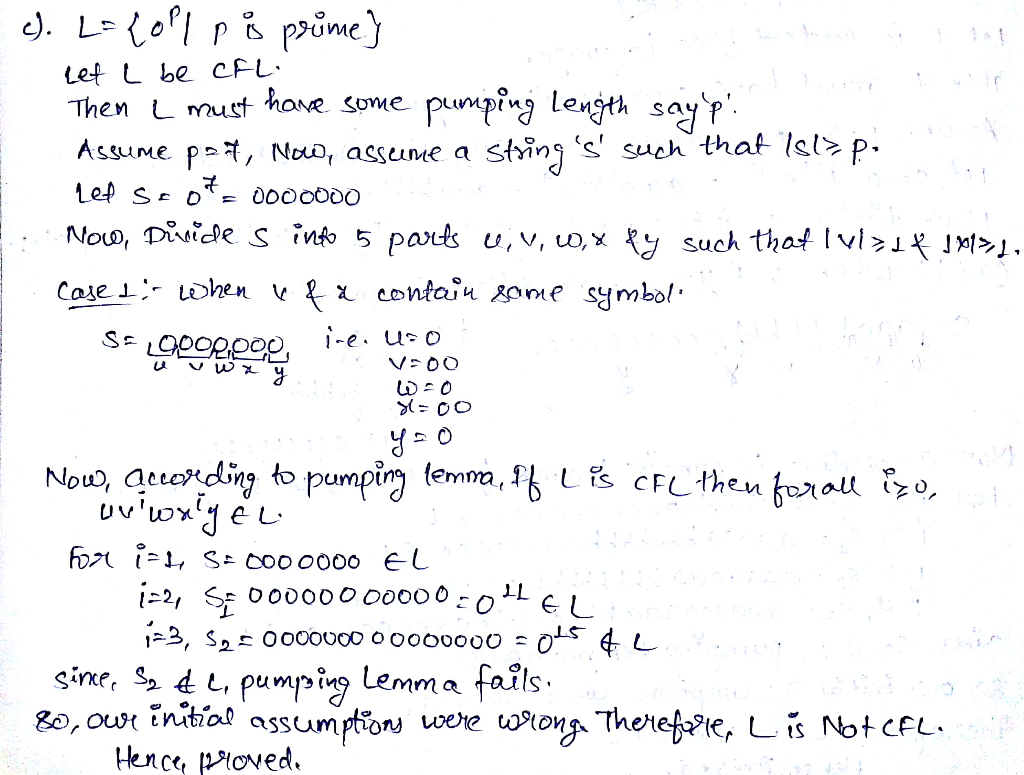 c). L = {0^p | p is prime}
Let L be CFL.
Then L must have some pumping length say 'p'.
Assume p=7, Now, assume a string 's' such that |s|≥p.
Let S = 0^7 = 0000000
Now, Divide s into 5 parts u, v, w, x & y such that |v|≥1 & |x|≥1.
Case 1:- when v & x contain same symbol.
S = 0000000 i.e. u=0
u v w x y v=00
w=0
x=00
y=0
Now, according to pumping lemma, if L is CFL then for all i≥0,
uv^iwx^iy ∈ L.
For i=1, S = 0000000 ∈ L
i=2, S_1 = 00000000000 = 0^11 ∈ L
i=3, S_2 = 000000000000000 = 0^15 ∉ L
since, S_2 ∉ L, pumping Lemma fails.
So, our initial assumptions were wrong. Therefore, L is Not CFL.
Hence, proved.